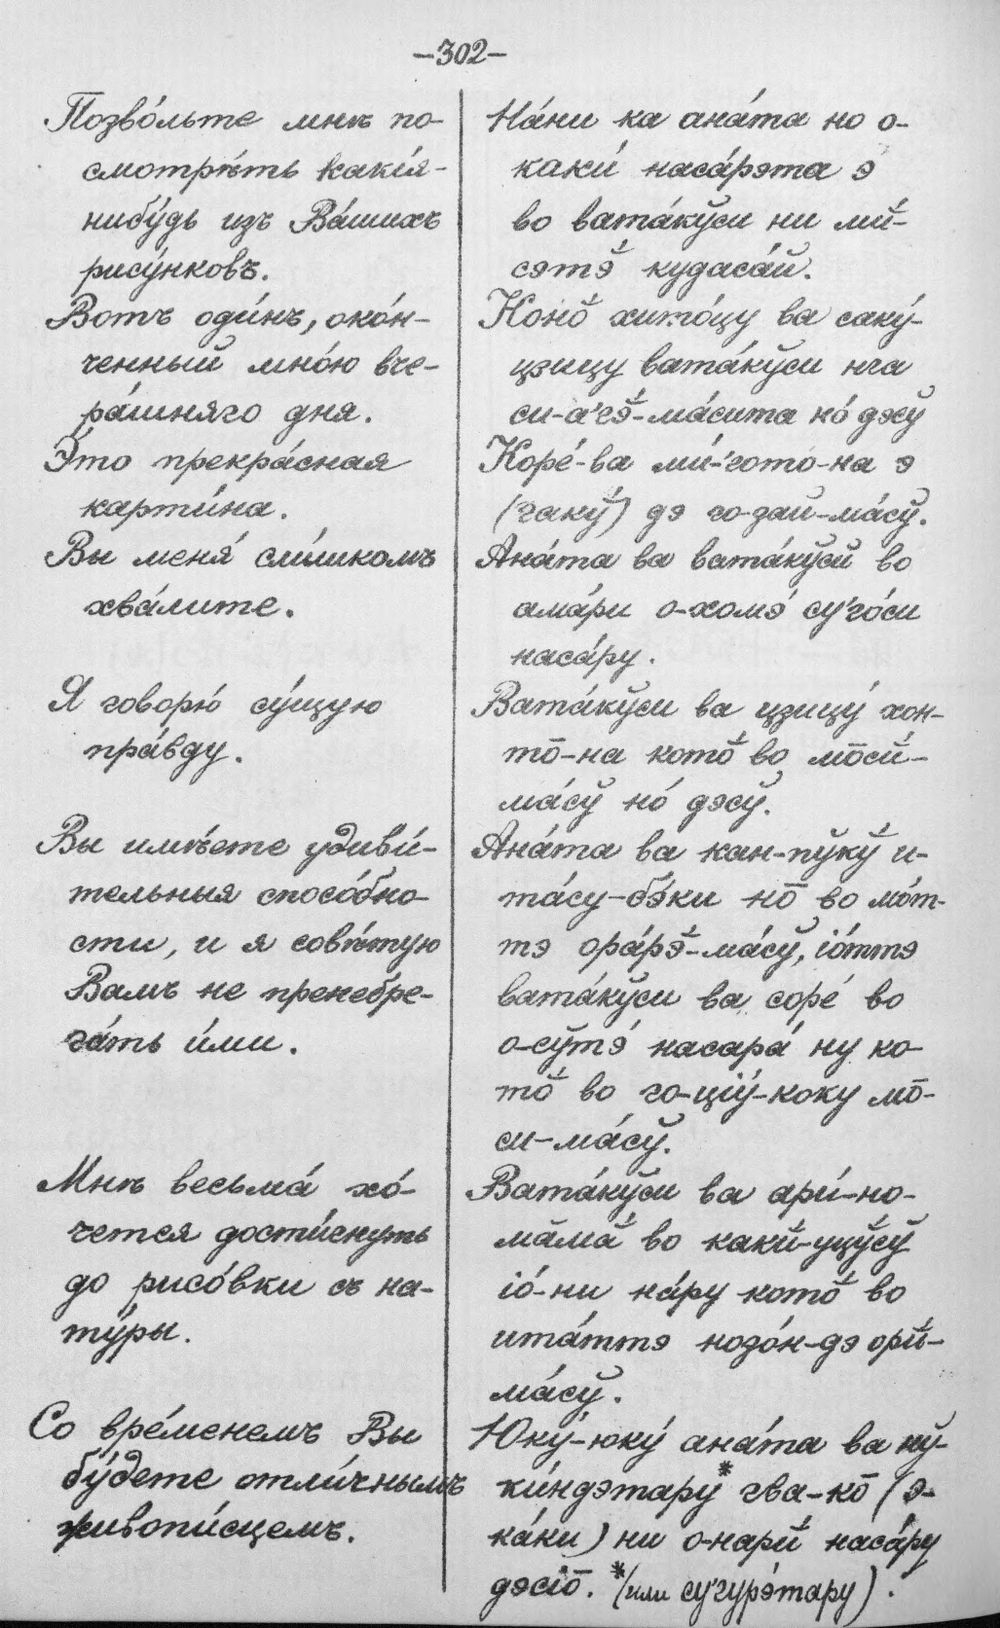 —302—
Позво́льте мнѣ по-
смотрѣ́ть какі́я-
нибу́дь изъ Ва́шихъ
рису́нковъ.
Вотъ оди́нъ, око́н-
ченный мно́ю вче-
ра́шняго дня.
Э́то прекра́сная
карти́на.
Вы меня́ сли́шкомъ
хва́лите.
Я говорю́ су́щую
пра́вду.
Вы имѣ́ете удиви́-
тельныя спосо́бно-
сти, и я совѣ́тую
Вамъ не пренебре-
га́ть и́ми.
Мнѣ весьма́ хо́-
чется дости́гнуть
до рисо́вки съ на-
ту́ры.
Со вре́менемъ Вы
бу́дете отли́чнымъ
живопи́сцемъ.
На́ни ка ана́та но о-
каки́ наса́рэта э
во вата́кӯси ни ми́-
сэтэ̆́ кудаса́й.
Коно̆́ хито́цу ва саку́-
цзицу вата́кӯси нга
си-а'гэ̆́-ма́сита но́ дэсӯ
Коре́-ва ми́-'гото-на э
(гакӯ́) дэ го-зай-ма́сӯ.
Ана́та ва вата́кӯсй во
ама́ри о-хомэ́ су'го́си
наса́ру.
Вата́кӯси ва цзицу́ хон-
то̄-на кото̆́ во мо̄сй́-
ма́сӯ но́ дэсӯ.
Ана́та ва кан-пӯкӯ́ и-
та́су-бэ́ки но̄ во мо́т-
тэ ора́рэ̆́-ма́сӯ, іо́ттэ
вата́кӯси ва соре́ во
о-сӯтэ́ насара́ ну ко-
то̆́ во го-ціӯ́-коку мо̄-
си-ма́сӯ.
Вата́кӯси ва ари́-но-
мамӑ́ во какй́-уцӯсӯ́
іо́-ни на́ру кото̆́ во
ита́ттэ нозо́н-дэ орй́-
ма́сӯ.
Юку́-юку́ ана́та ва ну́-
ки́ндэтару* гва-ко̄ (э-
ка́ки) ни о-нарй́ наса́ру
дэсіо̄. *(или су'гурэ́тару).